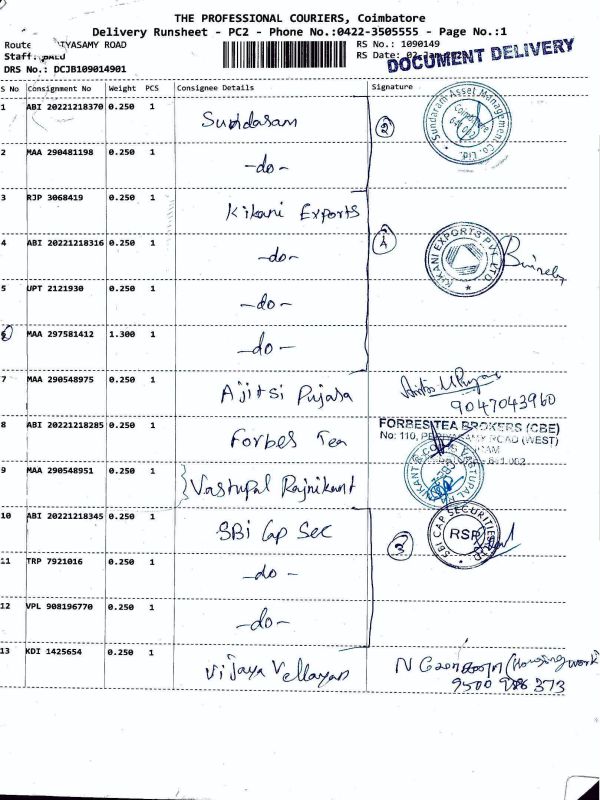 THE PROFESSIONAL COURIERS, Coimbatore
Delivery Runsheet - PC2 - Phone No.:0422-3505555 - Page No.:1
Route IYASAMY ROAD
RS No.: 1090149
Staff:
RS Date:
DOCUMENT DELIVERY
DRS No.: DCJB109014901
S No Consignment No Weight PCS Consignee Details Signature
1 ABI 20221218370 0.250 1 Sundaram
2 Sundaram Asset Management Co. Ltd.
2 MAA 290481198 0.250 1 -do-
3 RJP 3068419 0.250 1 Kikani Exports
4 ABI 20221218316 0.250 1 -do-
4 KIKANI EXPORTS PVT LTD
5 UPT 2121930 0.250 1 -do-
6 MAA 297581412 1.300 1 -do-
7 MAA 290548975 0.250 1 Ajitsi Pujara
9047043960
8 ABI 20221218285 0.250 1 Forbes Tea
FORBES TEA BROKERS (CBE)
No: 110, ROAD (WEST)
9 MAA 290548951 0.250 1 Vastupal Rajnikant
10 ABI 20221218345 0.250 1 SBi Cap Sec
3 SBI CAP SECURITIES
RSP
11 TRP 7921016 0.250 1 -do-
12 VPL 908196770 0.250 1 -do-
13 KDI 1425654 0.250 1 Vijaya Vellayan